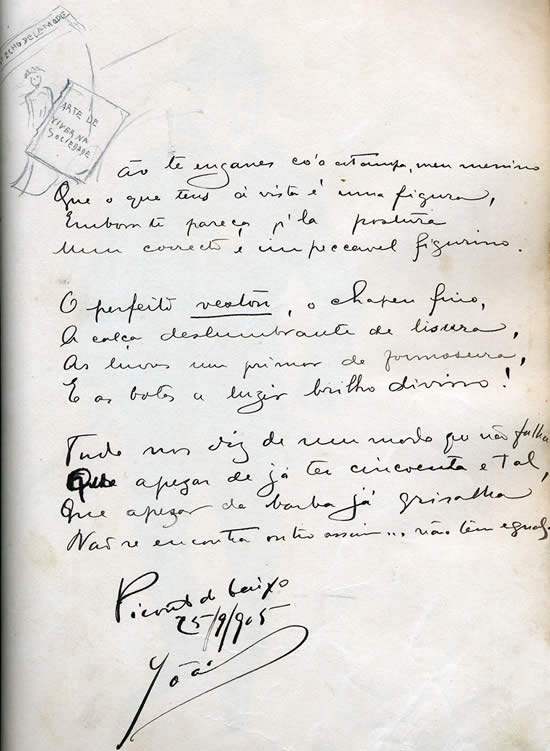 ECHO DE LA MODE
ARTE DE
VIVER NA
SOCIEDADE
ão te enganes co'o estampa, meu menino
Que o que tens á vista é uma figura,
Embora te pareça p'la postura
Num correcto e impeccavel figurino.
O perfeito veston, o chapeu fino,
A calça deslumbrante de lisura,
As luvas um primor de formosura,
E as botas a luzir brilho divino!
Tudo nos diz de um modo que não falha
Que apezar de já ter cincoenta e tal,
Que apezar da barba já grisalha
Não se encontra outro assim... não tem egual.
de baixo
25/9/905
João